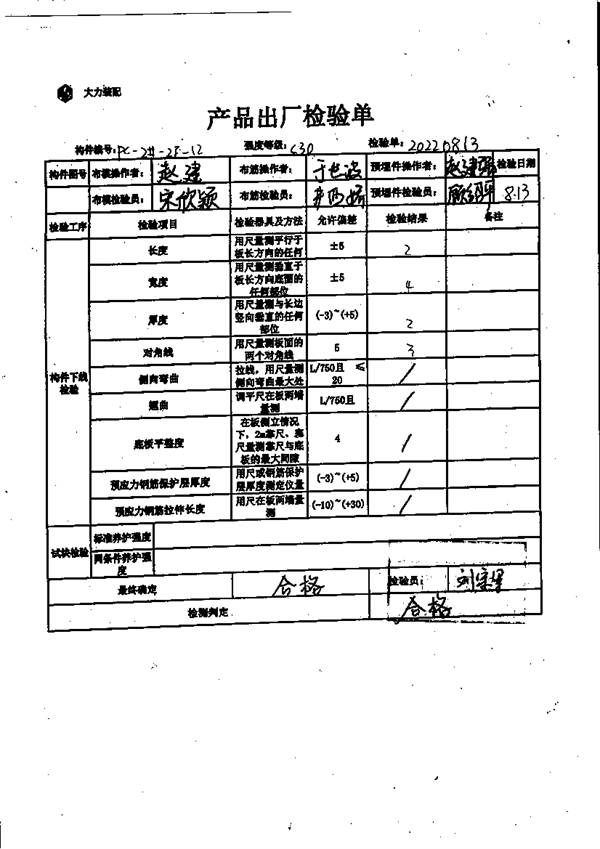 大力装配
产品出厂检验单
构件编号: PC-2#-2F-12 强度等级: C30 检验单: 20220813
构件图号 布模操作者: 赵建 布筋操作者: 预埋件操作者: 检验日期
布模检验员: 宋欣颖 布筋检验员: 预埋件检验员: 8.13
检验工序 检验项目 检验器具及方法 允许偏差 检验结果 备注
构件下线检验
长度 用尺量测平行于板长方向的任何 ±5 2
宽度 用尺量测垂直于板长方向底面的任何部位 ±5 4
厚度 用尺量测与长边竖向垂直的任何部位 (-3)~(+5) 2
对角线 用尺量测板面的两个对角线 5 3
侧向弯曲 拉线，用尺量测侧向弯曲最大处 L/750且 ≤20 /
翘曲 调平尺在板两端量测 L/750且 /
底板平整度 在板侧立情况下，2m靠尺、塞尺量测靠尺与底板的最大间隙 4 /
预应力钢筋保护层厚度 用尺或钢筋保护层厚度测定仪量 (-3)~(+5) /
预应力钢筋拉伸长度 用尺在板两端量测 (-10)~(+30) /
试块检验 标准养护强度
同条件养护强度
最终确定 合格 检验员:
检测判定 合格